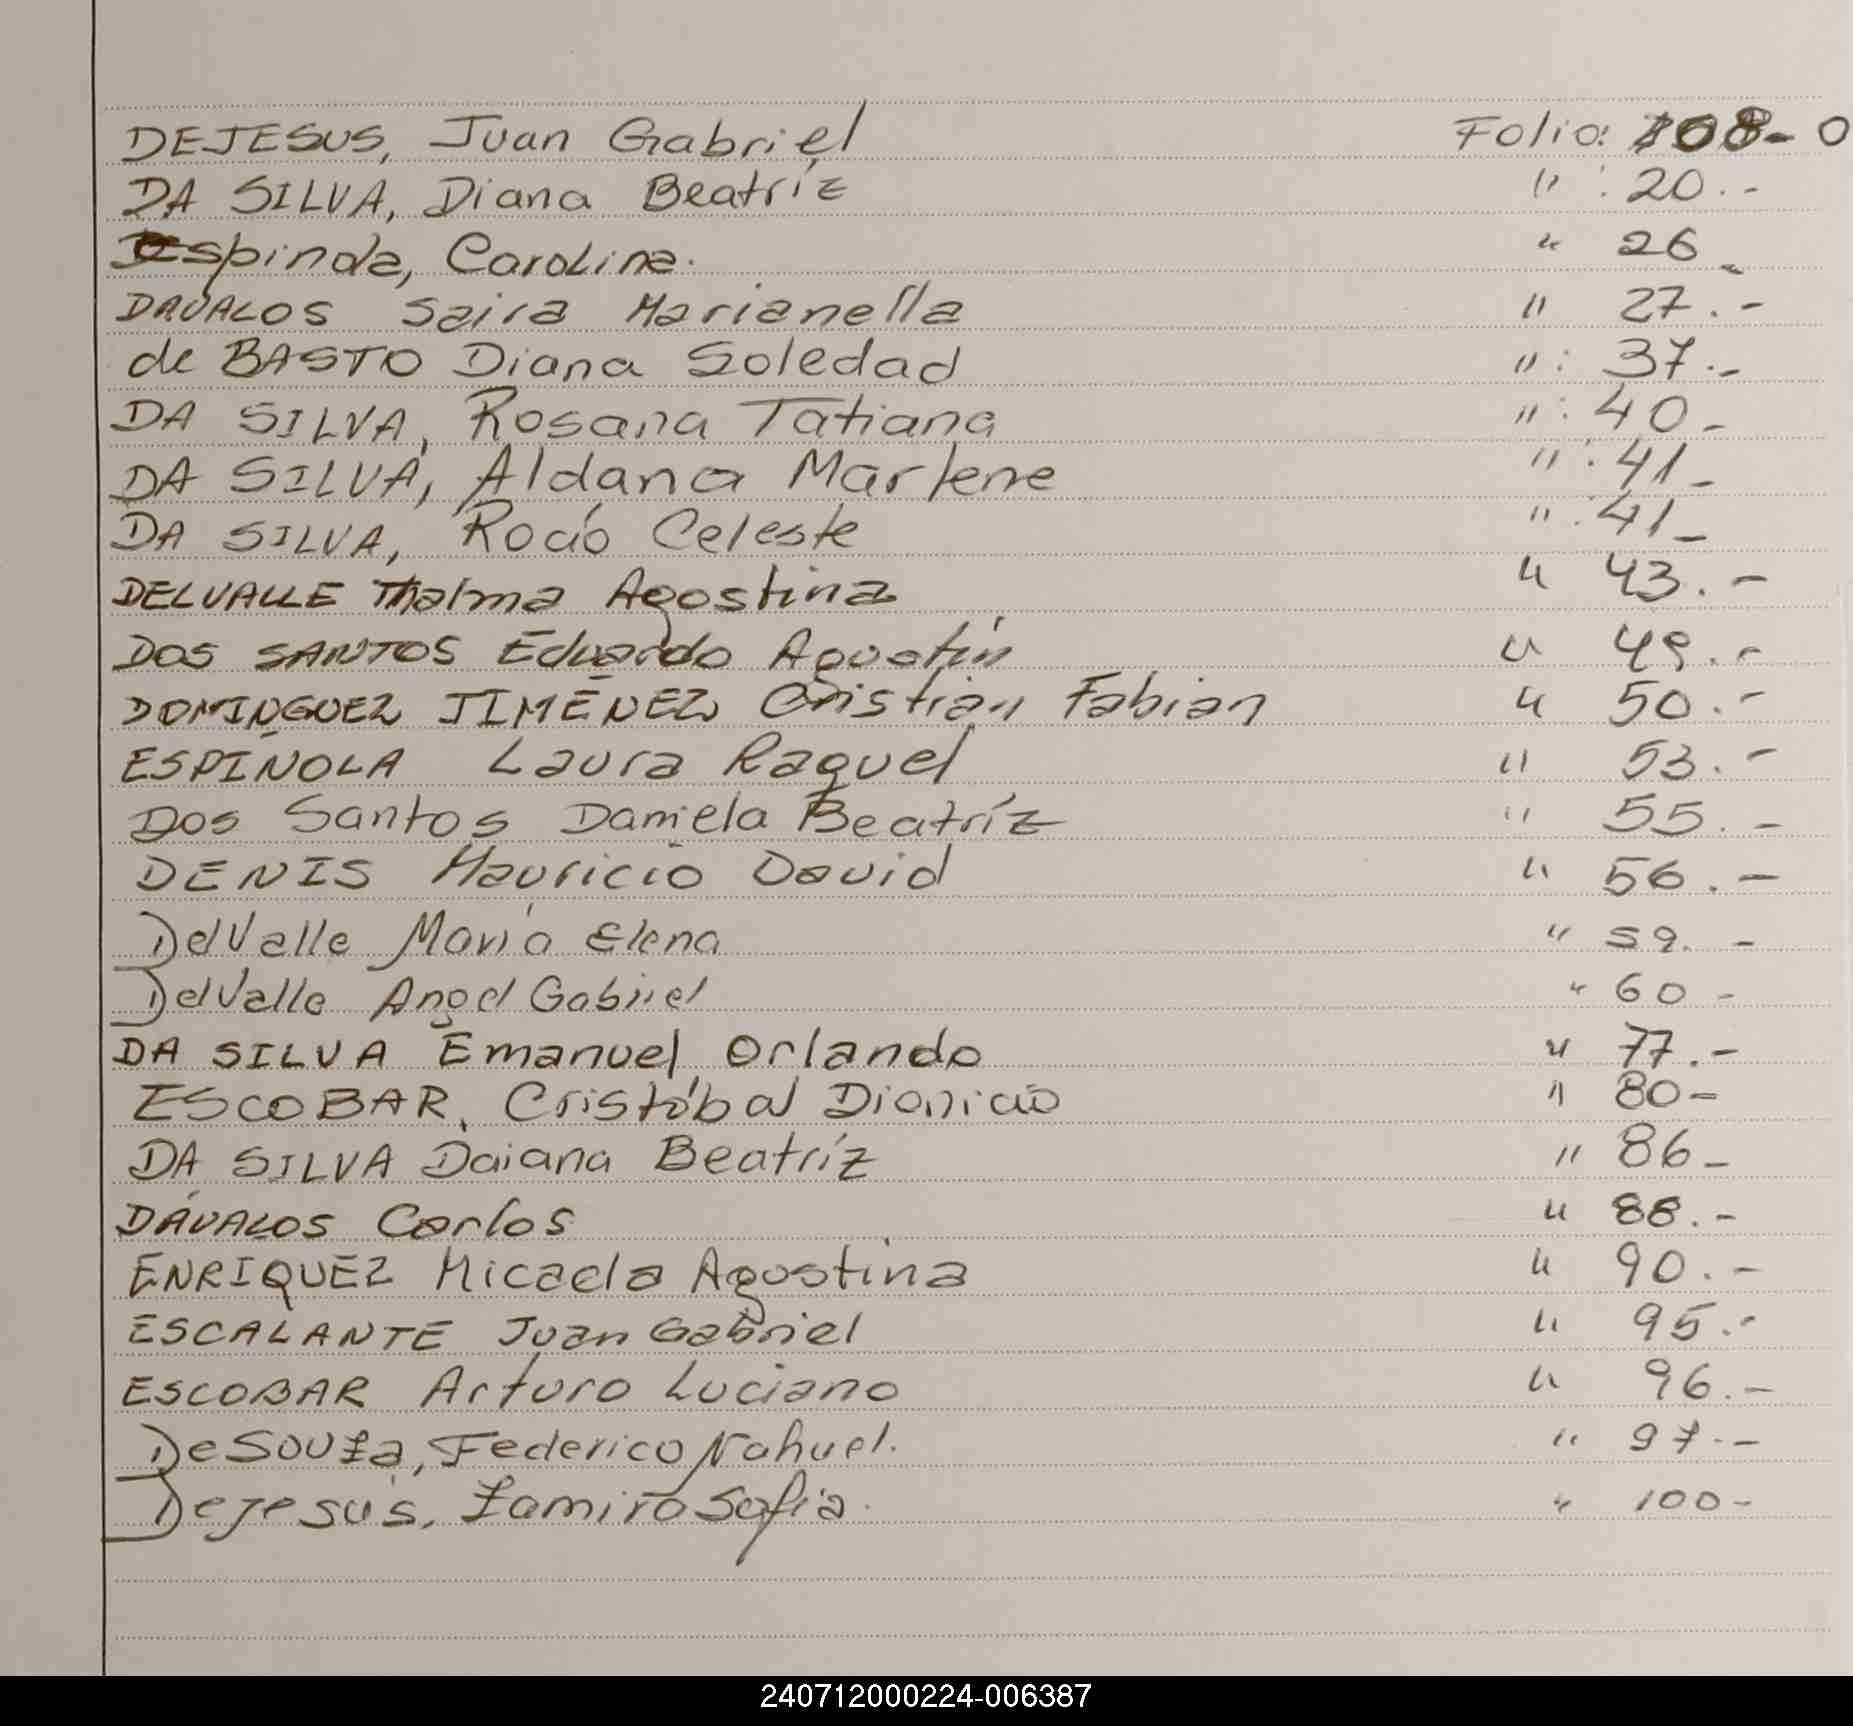 DEJESUS, Juan Gabriel Folio: 108- 0
DA SILVA, Diana Beatríz " : 20.-
Espinda, Carolina. " 26 -
DAVALOS Saira Marianella " 27.-
de BASTO Diana Soledad " : 37.-
DA SILVA, Rosana Tatiana " : 40-
DA SILVA, Aldana Marlene " : 41-
DA SILVA, Rocío Celeste " : 41-
DELVALLE Thalma Agostina " 43.-
DOS SANTOS Eduardo Agustín " 49.-
DOMINGUEZ JIMÉNEZ Cristian Fabian " 50.-
ESPÍNOLA Laura Raquel " 53.-
Dos Santos Daniela Beatríz " 55.-
DENIS Mauricio David " 56.-
DelValle María Elena " 59. -
DelValle Angel Gabriel " 60 -
DA SILVA Emanuel Orlando " 77.-
ESCOBAR, Cristóbal Dionicio " 80-
DA SILVA Daiana Beatríz " 86-
DÁVALOS Carlos " 88.-
ENRIQUEZ Micaela Agostina " 90.-
ESCALANTE Juan Gabriel " 95.-
ESCOBAR Arturo Luciano " 96.-
DeSouza, Federico Nahuel. " 97.-
Dejesús, Zamiro Sofia. " 100-
240712000224-006387